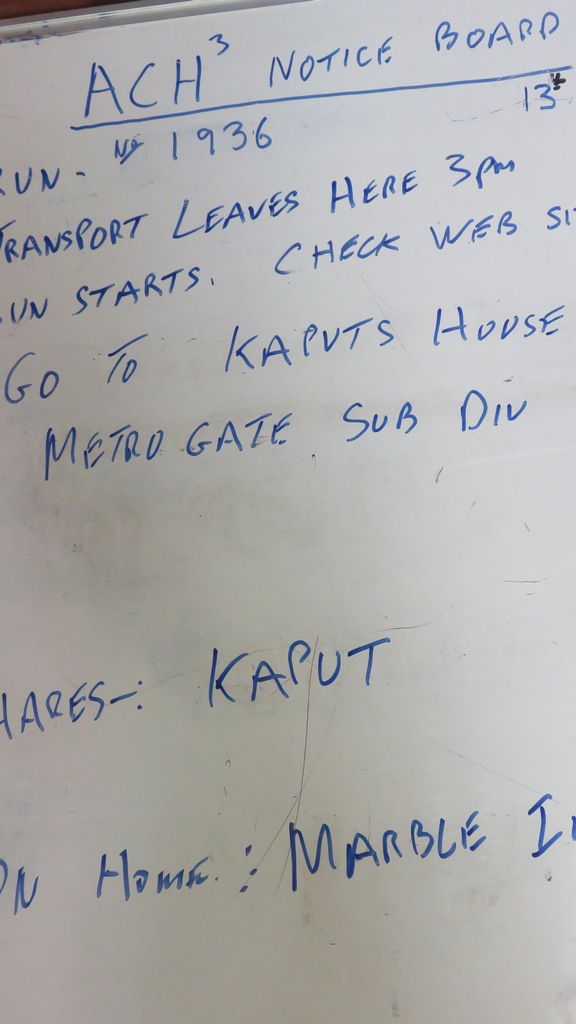 ACH³ NOTICE BOARD
13
RUN- No 1936
TRANSPORT LEAVES HERE 3pm
RUN STARTS. CHECK WEB SIT
GO TO KAPUTS HOUSE
METROGATE SUB DIV
HARES-: KAPUT
ON HOME: MARBLE IN